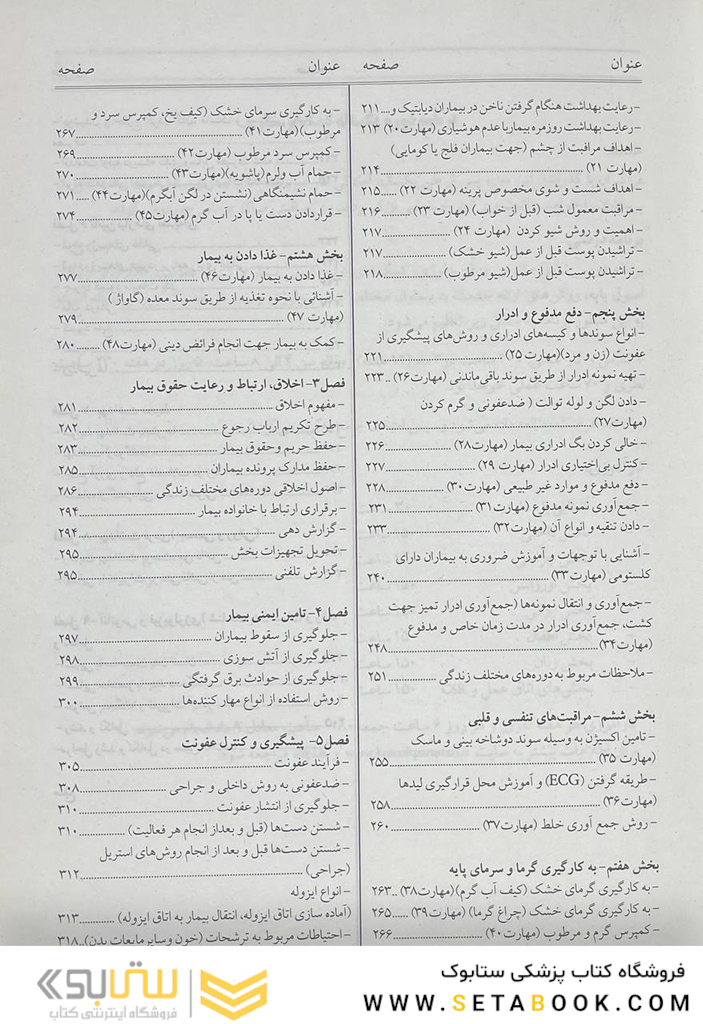 عنوان صفحه
- رعایت بهداشت هنگام گرفتن ناخن در بیماران دیابتیک و.... ۲۱۱
- رعایت بهداشت روزمره بیمار با عدم هوشیاری (مهارت ۲۰) ۲۱۳
- اهداف مراقبت از چشم (جهت بیماران فلج یا کومایی)
(مهارت ۲۱) ........ ۲۱۴
- اهداف شست و شوی مخصوص پرینه (مهارت ۲۲) ...... ۲۱۵
- مراقبت معمول شب (قبل از خواب) (مهارت ۲۳) ........ ۲۱۶
- اهمیت و روش شیو کردن (مهارت ۲۴) ........ ۲۱۷
- تراشیدن پوست قبل از عمل (شیو خشک) ........ ۲۱۷
- تراشیدن پوست قبل از عمل (شیو مرطوب) ........ ۲۱۸
بخش پنجم- دفع مدفوع و ادرار
- انواع سوندها و کیسه‌های ادراری و روش‌های پیشگیری از
عفونت (زن و مرد)(مهارت ۲۵) ........ ۲۲۱
- تهیه نمونه ادرار از طریق سوند باقی‌ماندنی (مهارت۲۶) .. ۲۲۳
- دادن لگن و لوله توالت ( ضدعفونی و گرم کردن
(مهارت۲۷) ........ ۲۲۵
- خالی کردن بگ ادراری بیمار (مهارت۲۸) ........ ۲۲۶
- کنترل بی‌اختیاری ادرار (مهارت ۲۹) ........ ۲۲۷
- دفع مدفوع و موارد غیر طبیعی (مهارت۳۰) ........ ۲۲۸
- جمع‌آوری نمونه مدفوع (مهارت۳۱) ........ ۲۳۱
- دادن تنقیه و انواع آن (مهارت۳۲) ........ ۲۳۳
- آشنایی با توجهات و آموزش ضروری به بیماران دارای
کلستومی (مهارت۳۳) ........ ۲۴۰
- جمع‌آوری و انتقال نمونه‌ها (جمع‌آوری ادرار تمیز جهت
کشت، جمع‌آوری ادرار در مدت زمان خاص و مدفوع
(مهارت۳۴) ........ ۲۴۸
- ملاحظات مربوط به دوره‌های مختلف زندگی ........ ۲۵۱
بخش ششم- مراقبت‌های تنفسی و قلبی
- تامین اکسیژن به وسیله سوند دوشاخه بینی و ماسک
(مهارت ۳۵) ........ ۲۵۵
- طریقه گرفتن (ECG) و آموزش محل قرارگیری لیدها
(مهارت۳۶) ........ ۲۵۸
- روش جمع آوری خلط (مهارت۳۷) ........ ۲۶۰
بخش هفتم- به کارگیری گرما و سرمای پایه
- به کارگیری گرمای خشک (کیف آب گرم)(مهارت۳۸) .. ۲۶۳
- به کارگیری گرمای خشک (چراغ گرما) (مهارت۳۹) ..... ۲۶۵
- کمپرس گرم و مرطوب (مهارت۴۰) ........ ۲۶۶
عنوان صفحه
- به کارگیری سرمای خشک (کیف یخ، کمپرس سرد و
مرطوب)(مهارت۴۱) ........ ۲۶۷
- کمپرس سرد مرطوب (مهارت۴۲) ........ ۲۶۹
- حمام آب ولرم (پاشویه)(مهارت۴۳) ........ ۲۷۰
- حمام نشیمنگاهی (نشستن در لگن آبگرم)(مهارت۴۴) .... ۲۷۱
- قراردادن دست یا پا در آب گرم (مهارت۴۵) ........ ۲۷۴
بخش هشتم- غذا دادن به بیمار
- غذا دادن به بیمار (مهارت۴۶) ........ ۲۷۷
- آشنائی با نحوه تغذیه از طریق سوند معده (گاواژ )
(مهارت ۴۷) ........ ۲۷۹
- کمک به بیمار جهت انجام فرائض دینی (مهارت۴۸) ...... ۲۸۰
فصل۳- اخلاق، ارتباط و رعایت حقوق بیمار
- مفهوم اخلاق ........ ۲۸۱
- طرح تکریم ارباب رجوع ........ ۲۸۲
- حفظ حریم وحقوق بیمار ........ ۲۸۳
- حفظ مدارک پرونده بیماران ........ ۲۸۵
- اصول اخلاقی دوره‌های مختلف زندگی ........ ۲۸۶
- برقراری ارتباط با خانواده بیمار ........ ۲۹۴
- گزارش دهی ........ ۲۹۴
- تحویل تجهیزات بخش ........ ۲۹۵
- گزارش تلفنی ........ ۲۹۵
فصل۴- تامین ایمنی بیمار
- جلوگیری از سقوط بیماران ........ ۲۹۷
- جلوگیری از آتش سوزی ........ ۲۹۸
- جلوگیری از حوادث برق گرفتگی ........ ۲۹۹
- روش استفاده از انواع مهار کننده‌ها ........ ۳۰۰
فصل۵- پیشگیری و کنترل عفونت
- فرآیند عفونت ........ ۳۰۵
- ضدعفونی به روش داخلی و جراحی ........ ۳۰۸
- جلوگیری از انتشار عفونت ........ ۳۱۰
- شستن دست‌ها (قبل و بعداز انجام هر فعالیت) ........ ۳۱۰
- شستن دست‌ها قبل و بعد از انجام روش‌های استریل
(جراحی) ........ ۳۱۲
- انواع ایزوله
(آماده سازی اتاق ایزوله، انتقال بیمار به اتاق ایزوله) ........ ۳۱۳
- احتیاطات مربوط به ترشحات (خون و سایر مایعات بدن).. ۳۱۸
فروشگاه کتاب پزشکی ستابوک
WWW.SETABOOK.COM
ستابوک
فروشگاه اینترنتی کتاب